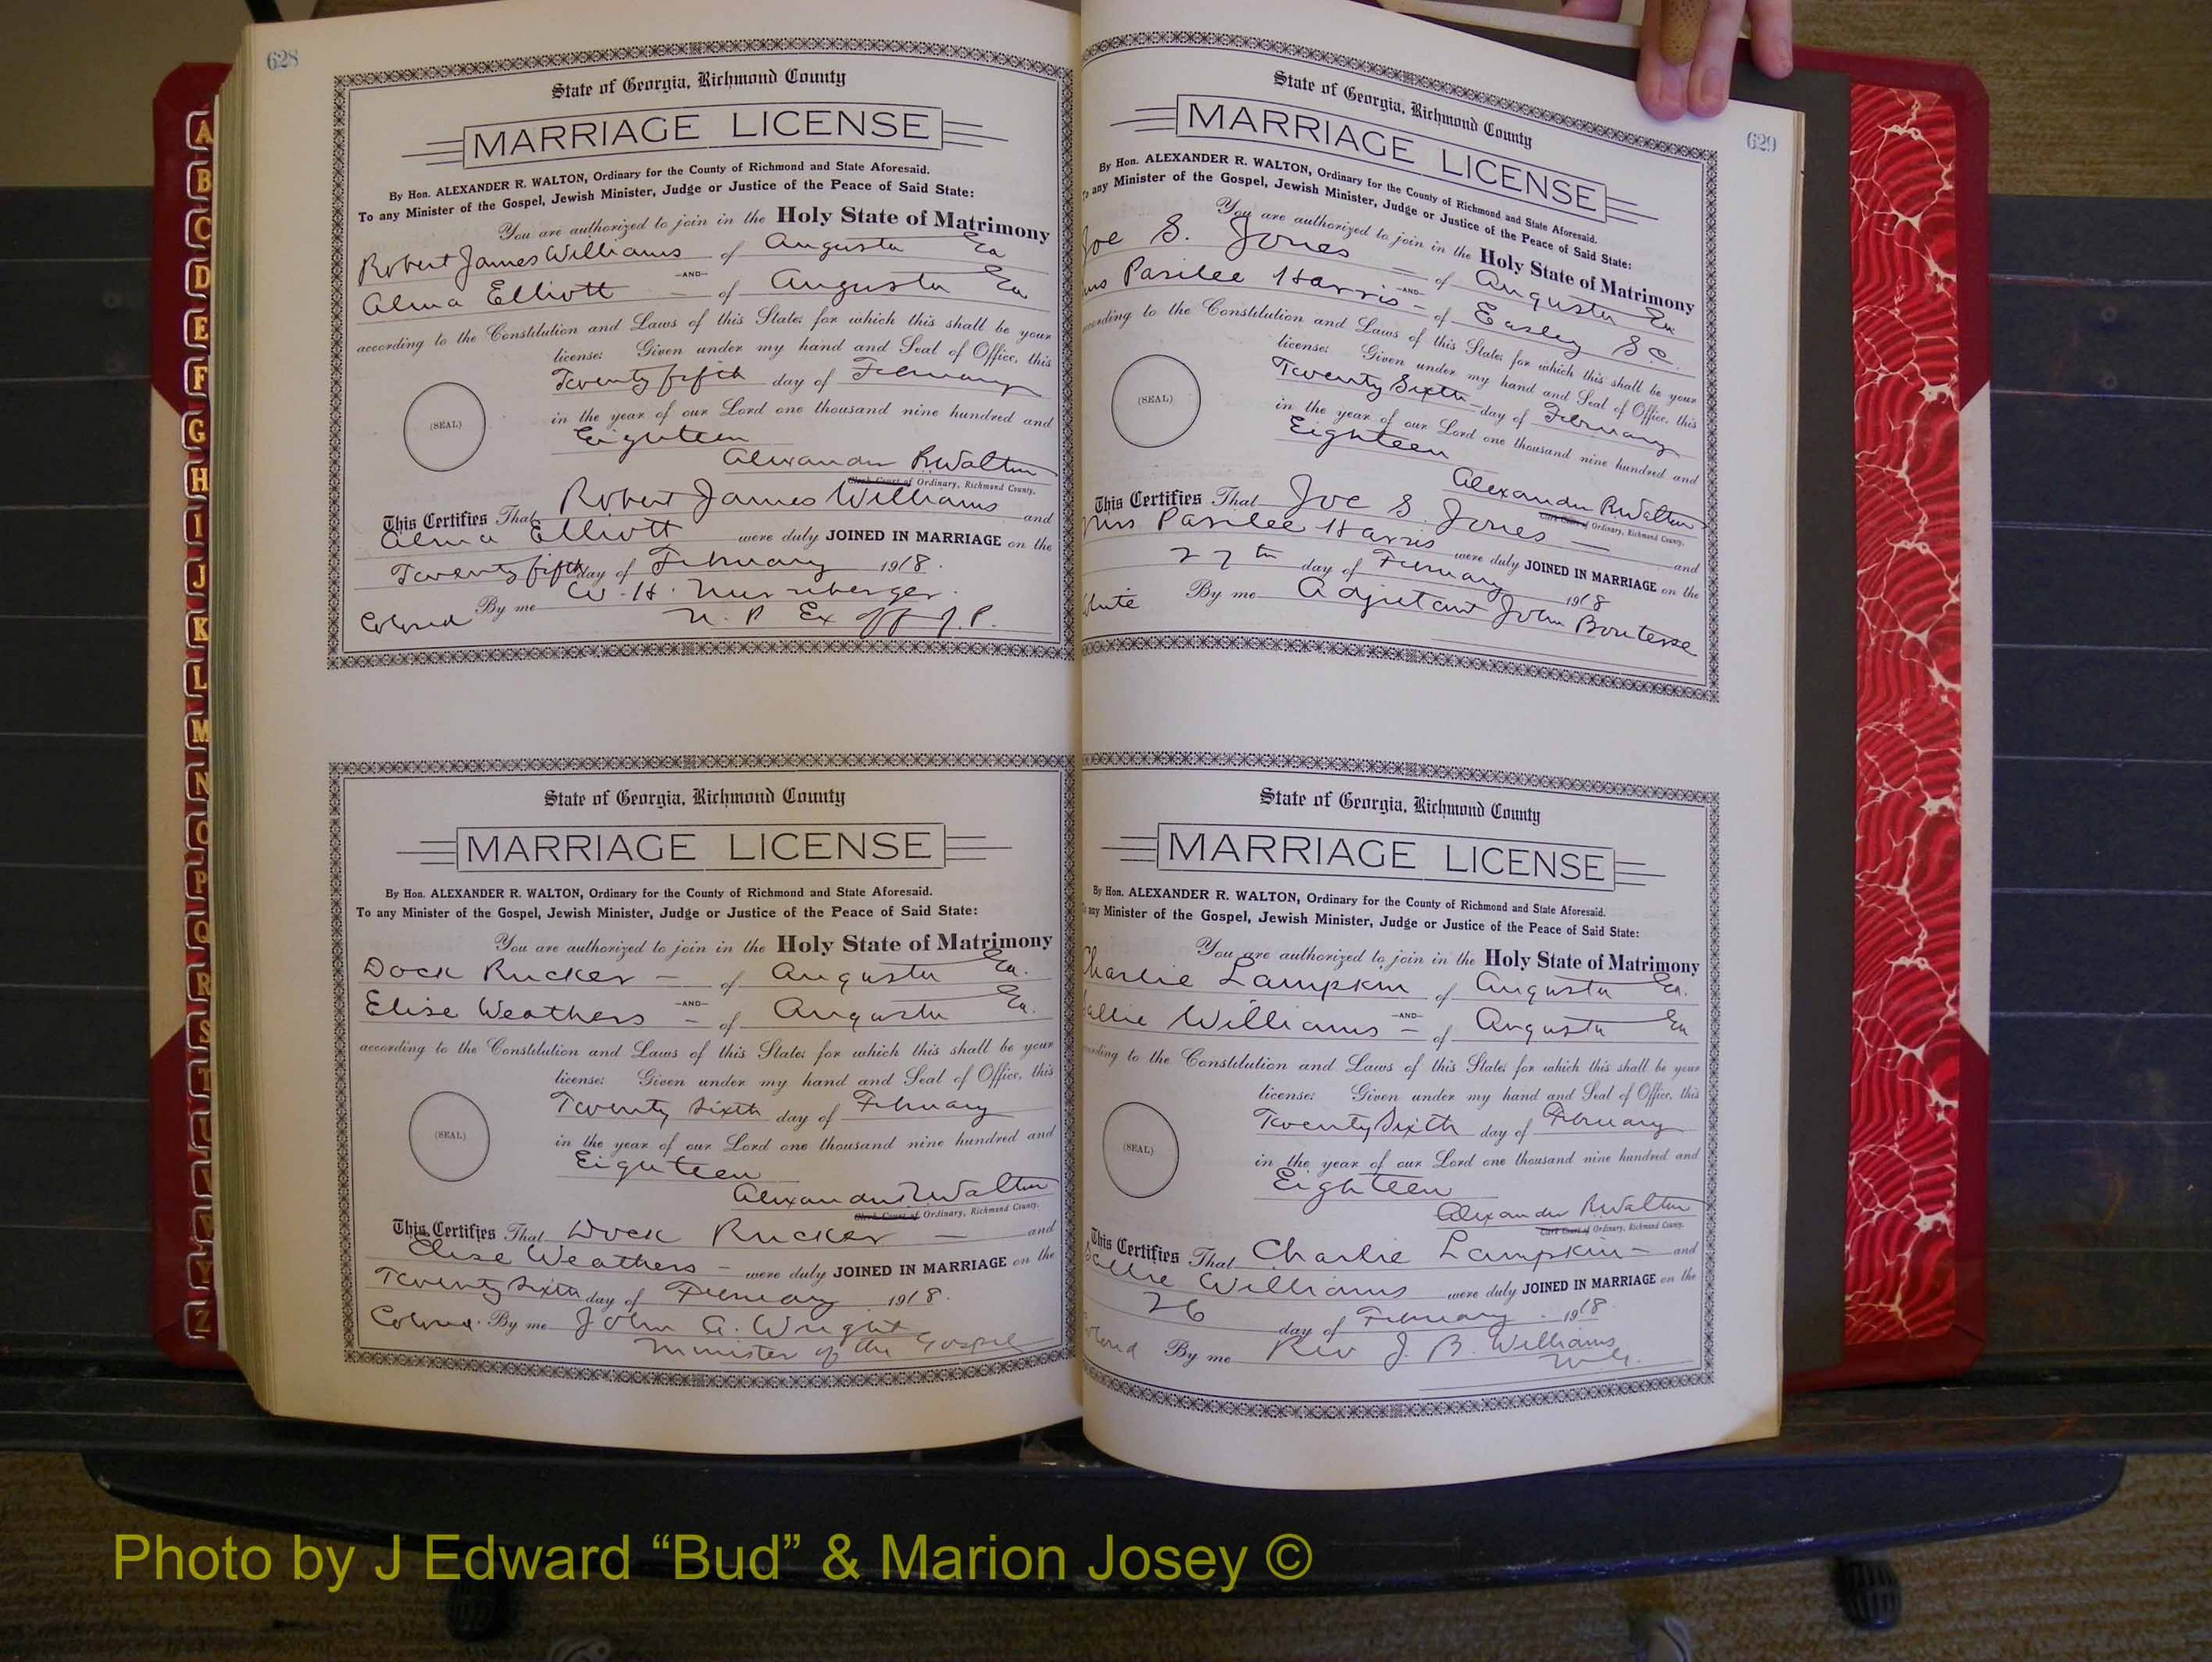 628
State of Georgia, Richmond County
MARRIAGE LICENSE
By Hon. ALEXANDER R. WALTON, Ordinary for the County of Richmond and State Aforesaid.
To any Minister of the Gospel, Jewish Minister, Judge or Justice of the Peace of Said State:
You are authorized to join in the Holy State of Matrimony
Robert James Williams of Augusta Ga
—AND—
Alma Elliott of Augusta Ga
according to the Constitution and Laws of this State; for which this shall be your
license: Given under my hand and Seal of Office, this
Twenty fifth day of February
(SEAL)
in the year of our Lord one thousand nine hundred and
Eighteen
Alexander R Walton
Clerk Court of Ordinary, Richmond County.
This Certifies That Robert James Williams and
Alma Elliott were duly JOINED IN MARRIAGE on the
Twenty fifth day of February 1918.
Colored By me W. H. Nurnberger
N. P Ex off J. P.
State of Georgia, Richmond County
MARRIAGE LICENSE
By Hon. ALEXANDER R. WALTON, Ordinary for the County of Richmond and State Aforesaid.
To any Minister of the Gospel, Jewish Minister, Judge or Justice of the Peace of Said State:
You are authorized to join in the Holy State of Matrimony
Dock Rucker — of Augusta Ga.
—AND—
Elise Weathers — of Augusta Ga.
according to the Constitution and Laws of this State; for which this shall be your
license: Given under my hand and Seal of Office, this
Twenty Sixth day of February
(SEAL)
in the year of our Lord one thousand nine hundred and
Eighteen
Alexander R Walton
Clerk Court of Ordinary, Richmond County.
This Certifies That Dock Rucker — and
Elise Weathers — were duly JOINED IN MARRIAGE on the
Twenty Sixth day of February 1918.
Colored. By me John A. Wright
Minister of the Gospel
629
State of Georgia, Richmond County
MARRIAGE LICENSE
By Hon. ALEXANDER R. WALTON, Ordinary for the County of Richmond and State Aforesaid.
To any Minister of the Gospel, Jewish Minister, Judge or Justice of the Peace of Said State:
You are authorized to join in the Holy State of Matrimony
Joe S. Jones of Augusta Ga
—AND—
Mrs Parilee Harris — of Easley S C.
according to the Constitution and Laws of this State; for which this shall be your
license: Given under my hand and Seal of Office, this
Twenty Sixth day of February
(SEAL)
in the year of our Lord one thousand nine hundred and
Eighteen
Alexander R Walton
Clerk Court of Ordinary, Richmond County.
This Certifies That Joe S. Jones — and
Mrs Parilee Harris were duly JOINED IN MARRIAGE on the
27th day of February 1918
White By me Adjutant John Bouterse
State of Georgia, Richmond County
MARRIAGE LICENSE
By Hon. ALEXANDER R. WALTON, Ordinary for the County of Richmond and State Aforesaid.
To any Minister of the Gospel, Jewish Minister, Judge or Justice of the Peace of Said State:
You are authorized to join in the Holy State of Matrimony
Charlie Lampkin of Augusta Ga.
—AND—
Sallie Williams — of Augusta Ga
according to the Constitution and Laws of this State; for which this shall be your
license: Given under my hand and Seal of Office, this
Twenty Sixth day of February
(SEAL)
in the year of our Lord one thousand nine hundred and
Eighteen
Alexander R Walton
Clerk Court of Ordinary, Richmond County.
This Certifies That Charlie Lampkin — and
Sallie Williams were duly JOINED IN MARRIAGE on the
26 day of February 1918
Colored By me Rev J. B. Williams
M.G.
A
B
C
D
E
F
G
H
I
J
K
L
M
N
O
P
Q
R
S
T
U
V
W
Y
Z
Photo by J Edward “Bud” & Marion Josey ©